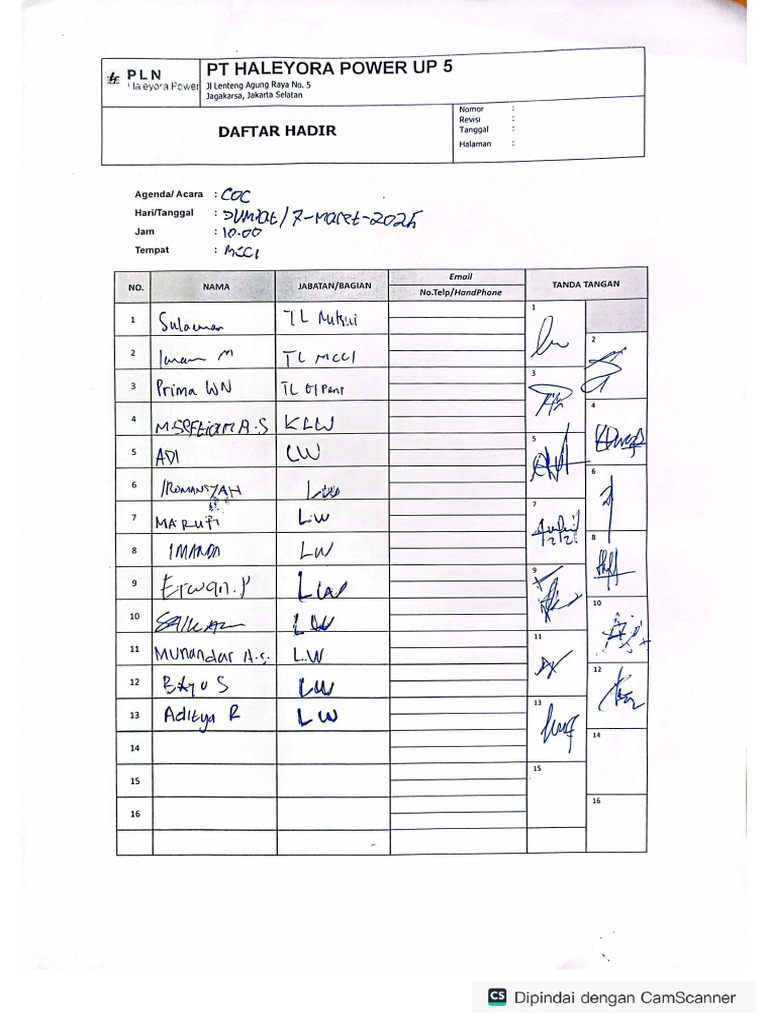 PLN
Haleyora Power
PT HALEYORA POWER UP 5
Jl Lenteng Agung Raya No. 5
Jagakarsa, Jakarta Selatan
DAFTAR HADIR
Nomor :
Revisi :
Tanggal :
Halaman :
Agenda/ Acara : COC
Hari/Tanggal : Jumat/7-Maret-2025
Jam : 10.00
Tempat : MCCI
NO. NAMA JABATAN/BAGIAN Email No.Telp/HandPhone TANDA TANGAN
1 Sulaiman TL 1
2 Imam M TL MCCI 2
3 Prima WN TL 3
4 M.SEPTIAN A.S KLW 4
5 ADI LW 5
6 IROMANSYAH LW 6
7 MARUFI L.W 7
8 IMANDA LW 8
9 Erwan.P LW 9
10 LW 10
11 Munandar A.S. L.W 11
12 BAYU S LW 12
13 Aditya R LW 13
14 14
15 15
16 16
CS Dipindai dengan CamScanner